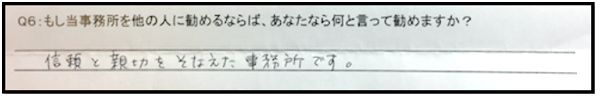 Q6:もし当事務所を他の人に勧めるならば、あなたなら何と言って勧めますか？
信頼と親切をそなえた事務所です。